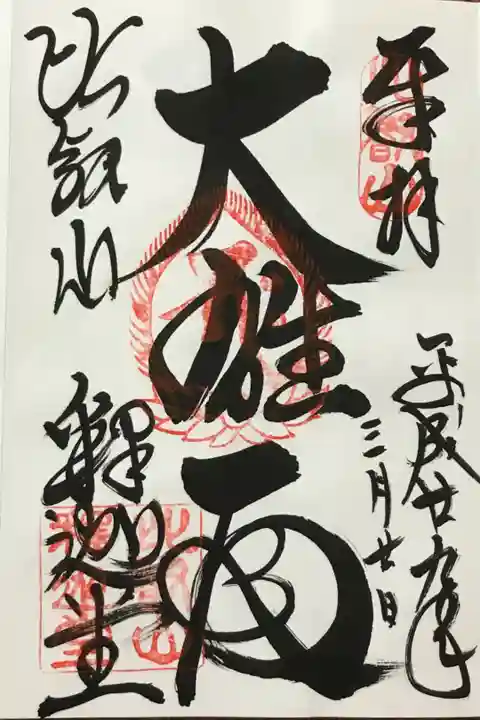 奉拝
平成廿九年
三月廿日
大雄
比叡山
釋迦堂